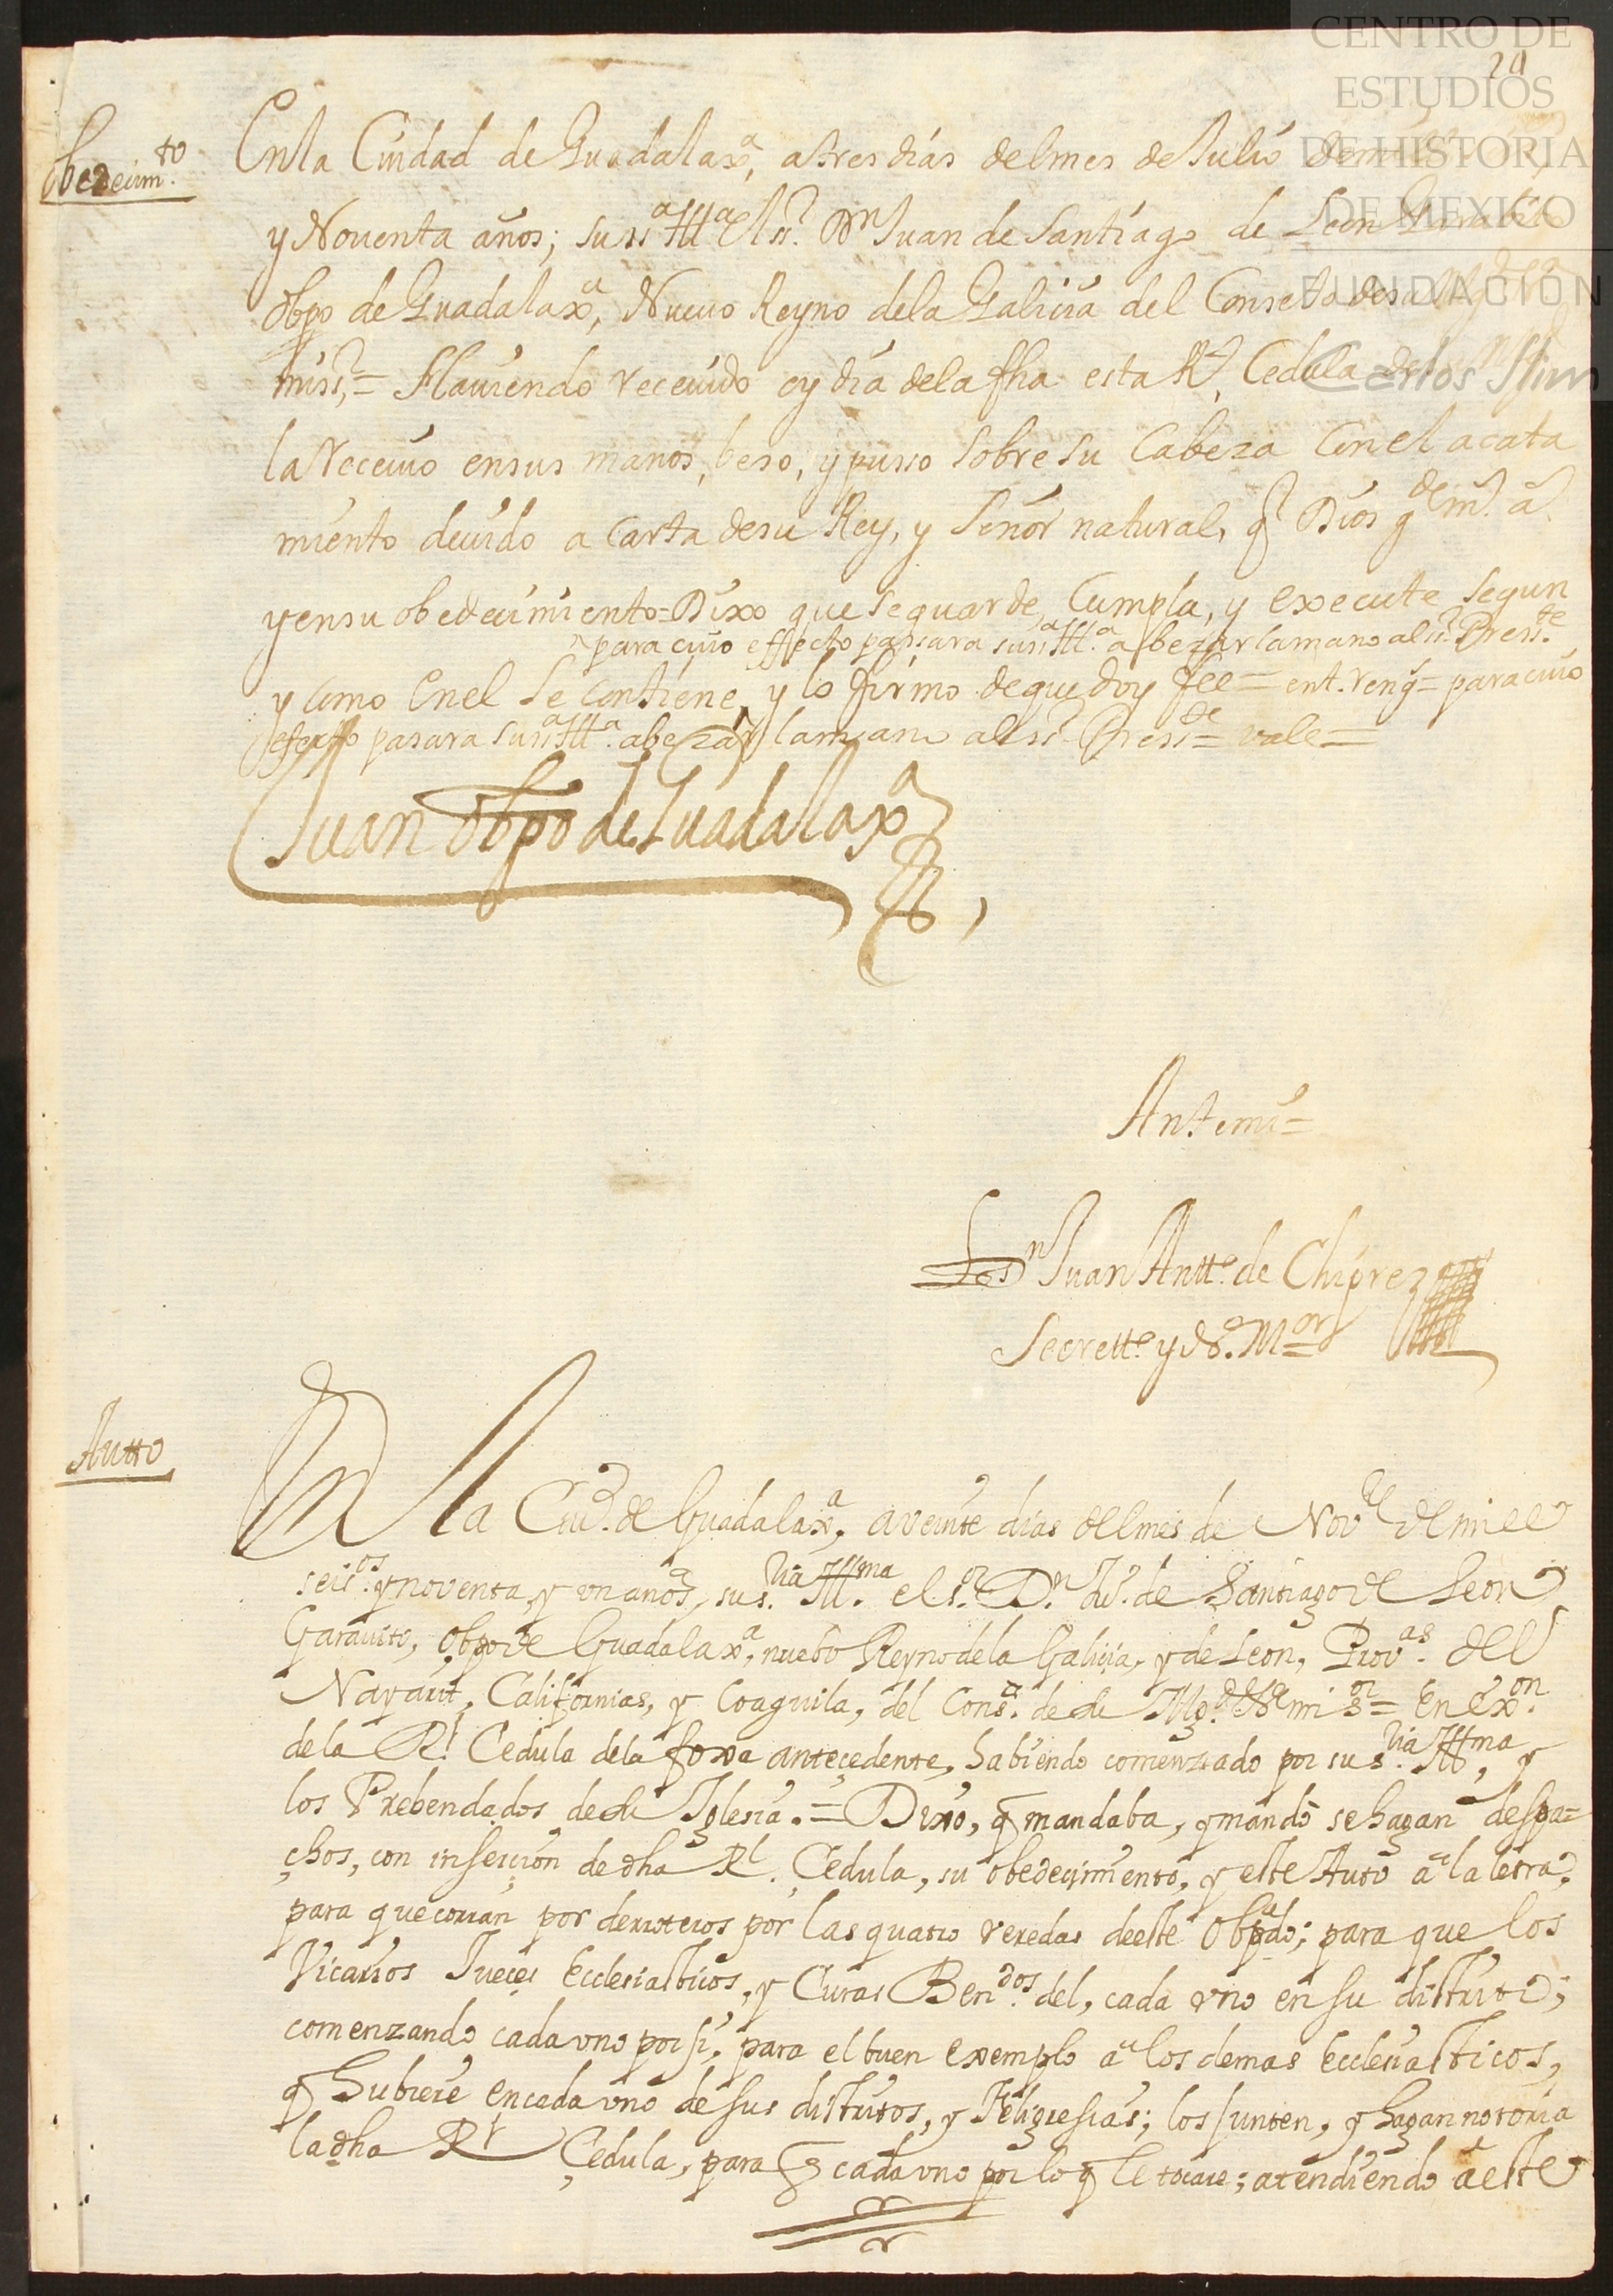 CENTRO DE
ESTUDIOS
DE HISTORIA
DE MEXICO
FUNDACIÓN
Carlos Slim
Obedecim.to
En la Ciudad de Guadalax.a, a tres dias del mes de Julio de
y Noventa años; su ss.a Ill.a El s.r D.n Juan de Santiago de Leon Garabito
obpo de Guadalax.a, Nuevo Reyno de la Galicia del Consejo de su Mg.d
mi s.r, = Haviendo receuido oy dia de la fha esta R.l Cedula
la Receuio en sus manos, beso, y pusso sobre su Cabeza Con el acata
miento deuido a Carta de su Rey, y Señor natural, q Dios g.de m.s a.s
y en su obedecimiento = Dixo que se guarde, Cumpla, y execute segun
para cuio effecto passara su ss.a Ill.a a bezar la mano al s.r Press.te
y como En el se contiene, y lo firmo de que doy fee = ent. reng.s = para cuio
efecto pasara su ss.a Ill.a a bezar la mano al s.r Press.de = vale =
Juan Obpo de Guadalax.a
Ante mi =
D.n Juan Antt.o de Chiprez
Secrett.o y N.o M.or
Autto
En la Ciud. de Guadalax.a, a veinte dias del mes de Nov.e de mill
seis.os y noventa, y vn anos, su s.ria Ill.ma el s.or D.n Ju.o de Santiago de Leon
Garauito, Obpo de Guadalax.a, nuebo Reyno de la Galicia, y de Leon, Prov.as del
Nayarit, Californias, y Coaguila, del Cons.o de su Mg.d &a mi s.or = En ex.on
de la R.l Cedula de la foxa antecedente, habiendo comenzado por su s.ria Ill.ma, y
los Prebendados de su Iglesia. = Dixo, q mandaba, y mandò se hagan despa=
chos, con insercion de dha R.l Cedula, su obedecimiento, y este Auto a la letra,
para que corran por derroteros por las quatro veredas de este Obpado; para que los
Vicarios Jueces Ecclesiasticos, y Curas Ben.dos del, cada vno en su distrito;
comenzando cada vno por si, para el buen exemplo a los demas Ecclesiasticos,
q hubiere en cada vno de sus distritos, y Feligresias; los junten, y hagan notoria
la dha R.l Cedula, para q cada vno por lo q le tocare; atendiendo à este